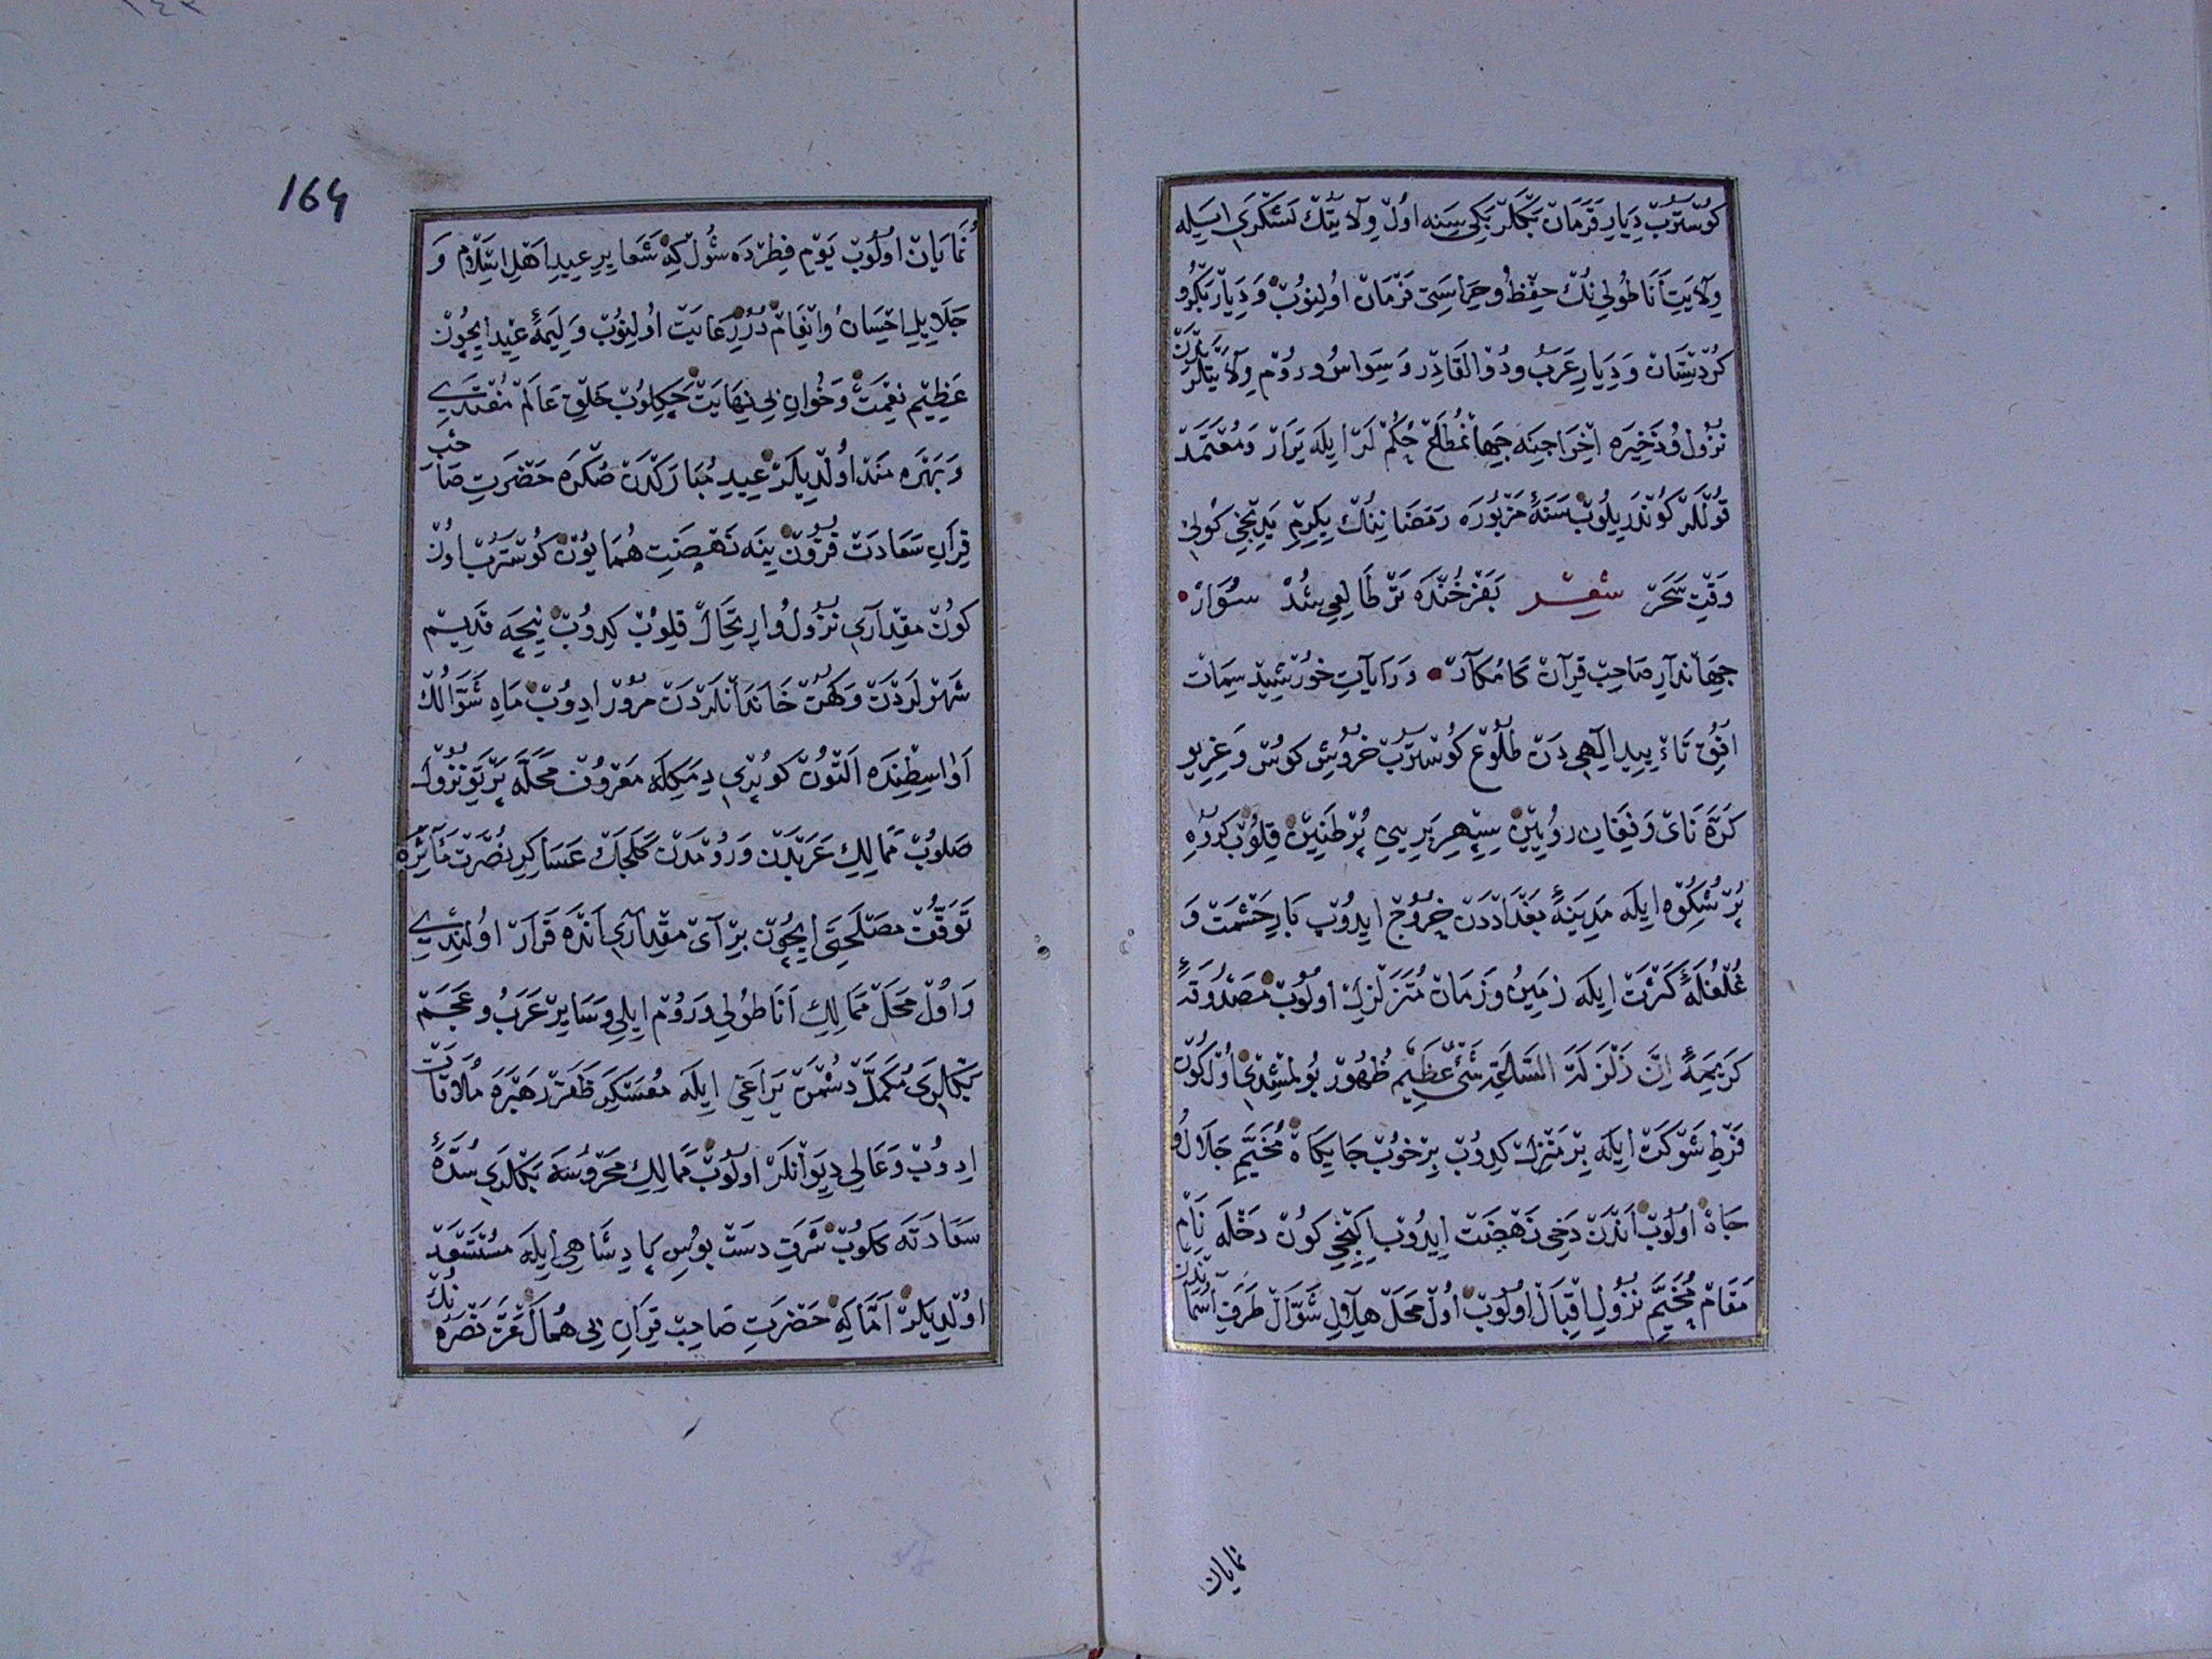 كوستروب ديار قرمان بكلر بكيسينه اول ولايتك لشكرى ايله
ولايت أناطولي نك حفظ و حراستى فرمان اولنوب و ديار بكر و
كردستان و ديار عرب و ذو القادر و سيواس و روم ولايتلرندن
نزول و ذخيره اخراجينه جهانمطاع حكم لر ايله يرار و معتمد
قوللر كوندريلوب سنهٔ مزبوره رمضانينك يكرم يدنجي كوني
وقت سحر شعر بفرخنده تر طالعي شد سوار
جهاندار صاحب قران كامكار و رايات خورشيد سمات
افق تاءييد الهي دن طلوع كوستروب خروش كوس و غريو
كره ناى و نفيان رويين سپهر بريني پر طنين قلوب كروه
پر شكوه ايله مدينهٔ بغداددن خروج ايدوب بار حشمت و
غلغلهٔ كثرت ايله زمين و زمان متزلزل اولوب مصدوقهٔ
كريمهٔ ان زلزلة الساعة شئ عظيم ظهور بولمشدى اول كون
فرط شوكت ايله بر منزل كيدوب بر خوب جايكاه مخيم جلال و
جاه اولوب اندن دخى نهضت ايدوب ايكنجي كون دخله نام
مقام مخيم نزول اقبال اولوب اول محل هلال شوال طرف آسماندن
نمايان
164
نمايان اولوب يوم فطرده شول كه شعاير عيد اهل اسلام و
جلايل احسان و انعام درر رعايت اولنوب وليمهٔ عيد ايچون
عظيم نعمت و خوان بي نهايت چكلوب خلق عالم مغتدي
و بهره مند اولديلر عيد مباركدن صكره حضرت صاحب
قران سعادت فزون ينه نهضت همايون كوستروب اون
كون مقدارى نزول و ارتحال قلوب كيدوب نيچه قديم
شهرلردن و كهن خاندانلردن مرور ادوب ماه شوالك
اواسطنده التون كوپرى ديمكله معروف محله پرتو نزول
صلوب ممالك عربدن و رومدن كلجك عساكر نصرت مآثره
توقف مصلحتى ايچون بر آى مقدارى انده قرار اولندي
و اول محل ممالك اناطولي و روم ايلي و ساير عرب و عجم
بكلرى مكمل دشمن يراغي ايله معسكر ظفر رهبره ملاقات
ادوب و عالي ديوانلر اولوب ممالك محروسه بكلرى سدهٔ
سعادته كلوب شرف دست بوس پادشاهي ايله مستسعد
اولديلر اما كه حضرت صاحب قران بي همال عز نصره نك